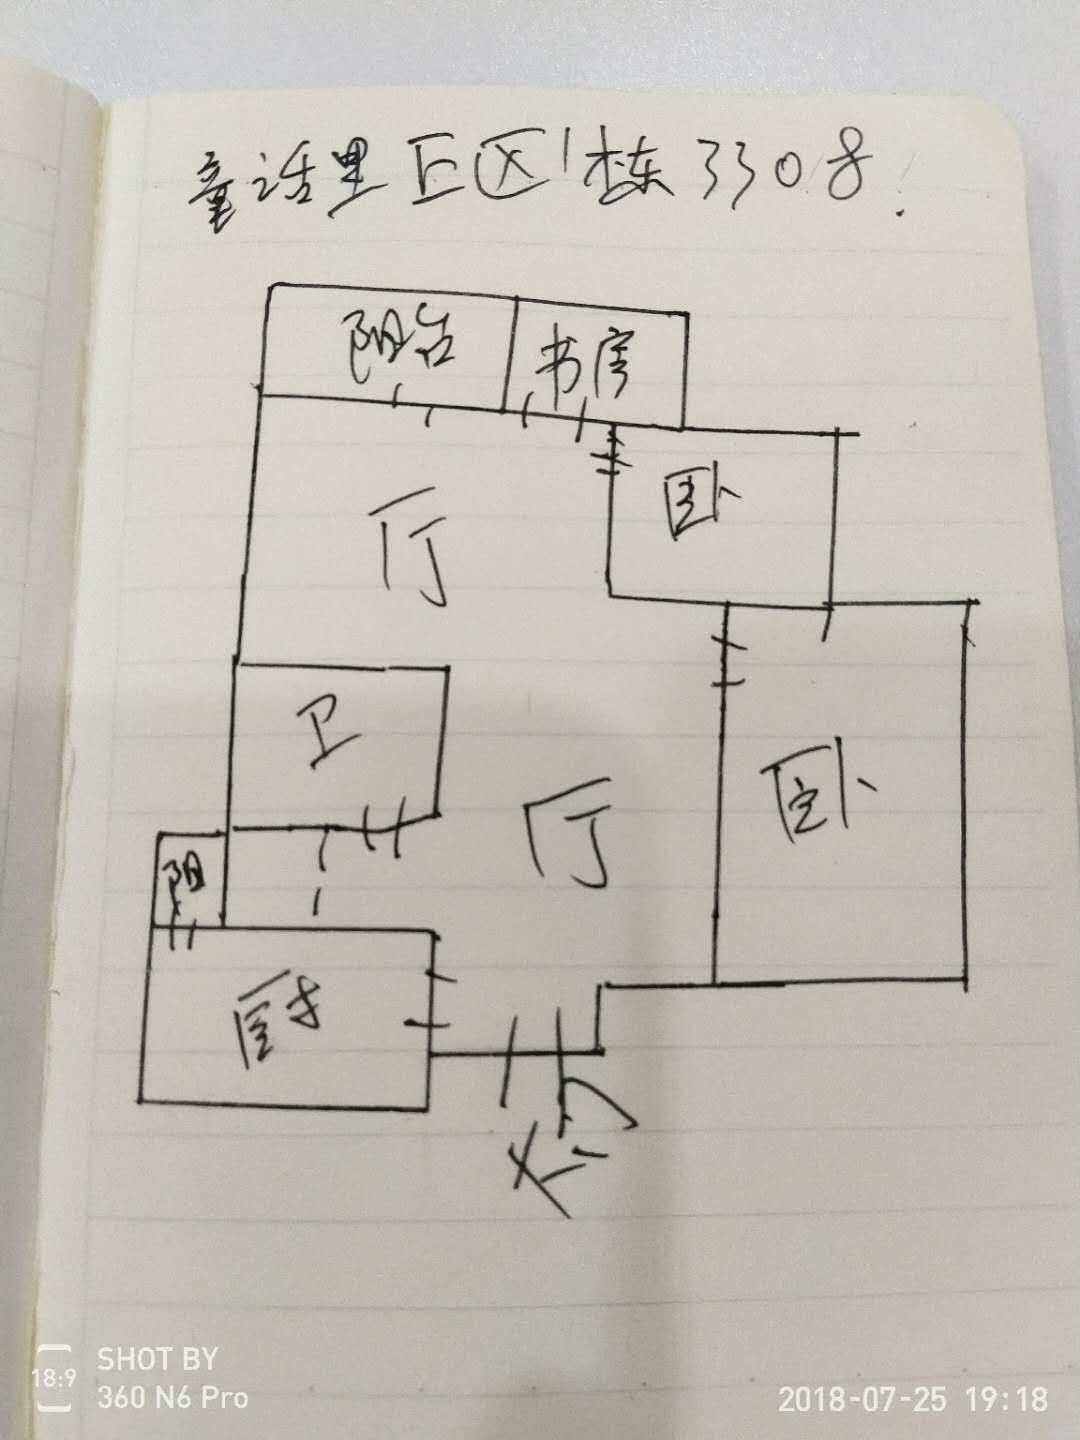 童话里E区1栋3308.
阳台
书房
卧
厅
卫
厅
卧
阳
厨
大门
18:9
SHOT BY
360 N6 Pro
2018-07-25 19:18